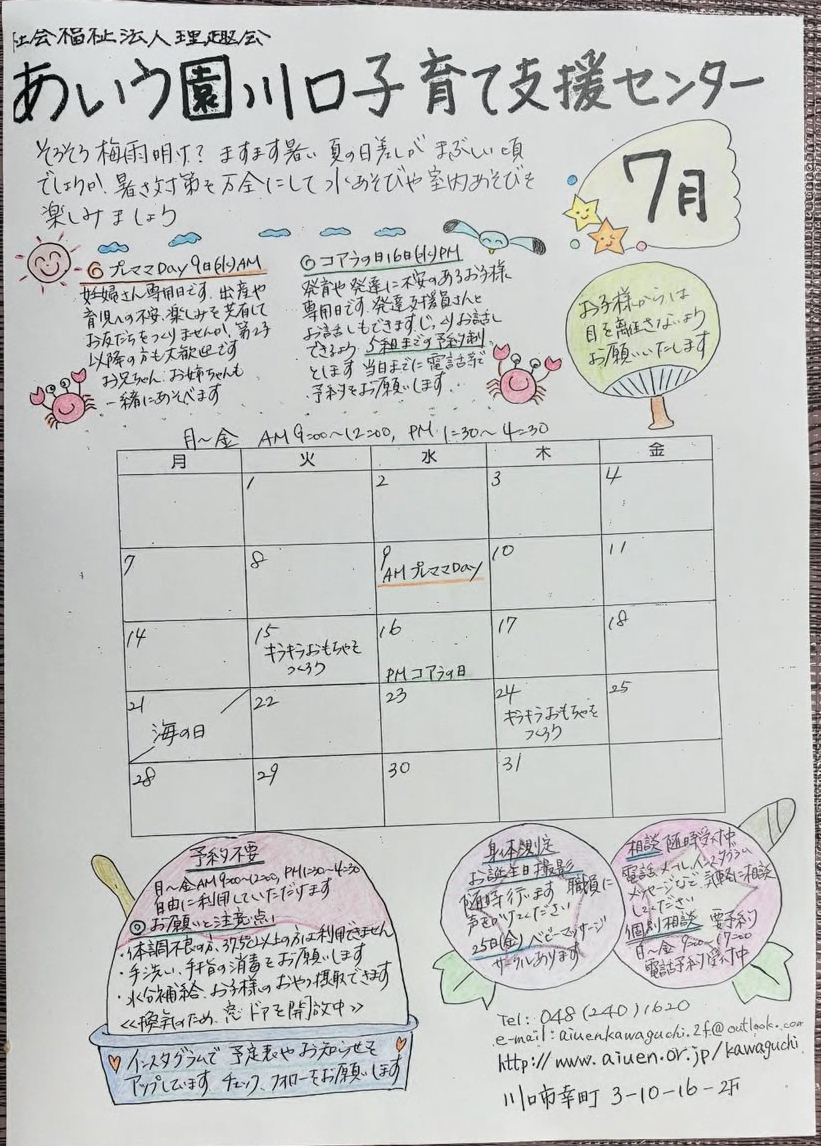 社会福祉法人理趣会
あいう園川口子育て支援センター
7月
そろそろ梅雨明け?ますます暑い夏の日差しがまぶしい頃
でしょうか。暑さ対策を万全にして水あそびや室内あそびを
楽しみましょう
◎プレママDay 9日(水)AM
妊婦さん専用日です。出産や
育児への不安、楽しみを共有して
お友だちをつくりませんか。第2子
以降の方も大歓迎です
お兄ちゃん、お姉ちゃんも
一緒にあそべます
◎コアラの日16日(水)PM
発育や発達に不安のあるお子様
専用日です。発達支援員さんと
お話しもできます。じっくりお話し
できるよう、5組までの予約制
とします。当日までに電話等で
予約をお願いします。
お子様からは
目を離さないよう
お願いいたします
月〜金 AM9:00〜12:00, PM1:30〜4:30
月 火 水 木 金
1 2 3 4
7 8 9 10 11
AMプレママDay
14 15 16 17 18
キラキラおもちゃを
つくろう
PMコアラの日
21 22 23 24 25
海の日
キラキラおもちゃを
つくろう
28 29 30 31
予約不要
月〜金AM9:00〜12:00, PM1:30〜4:30
自由に利用していただけます
◎お願いと注意点!
・体調不良の方、37.5℃以上の方は利用できません
・手洗い、手指の消毒をお願いします
・水分補給、お子様のおやつ摂取できます
<<換気のため、窓、ドアを開放中>>
インスタグラムで予定表やお知らせを
アップしています チェック、フォローをお願いします
身体測定
お誕生日撮影
随時行います 職員に
声をかけてください
25日(金)ベビーマッサージ
サークルあります
相談随時受付中
電話、メール、インスタグラム
メッセージなどで気軽に相談
してください
個別相談 要予約
月〜金 9:00〜17:00
電話予約受付中
Tel: 048(240)1620
e-mail: aiuenkawaguchi.2f@outlook.com
http://www.aiuen.or.jp/kawaguchi
川口市幸町 3-10-16-2F